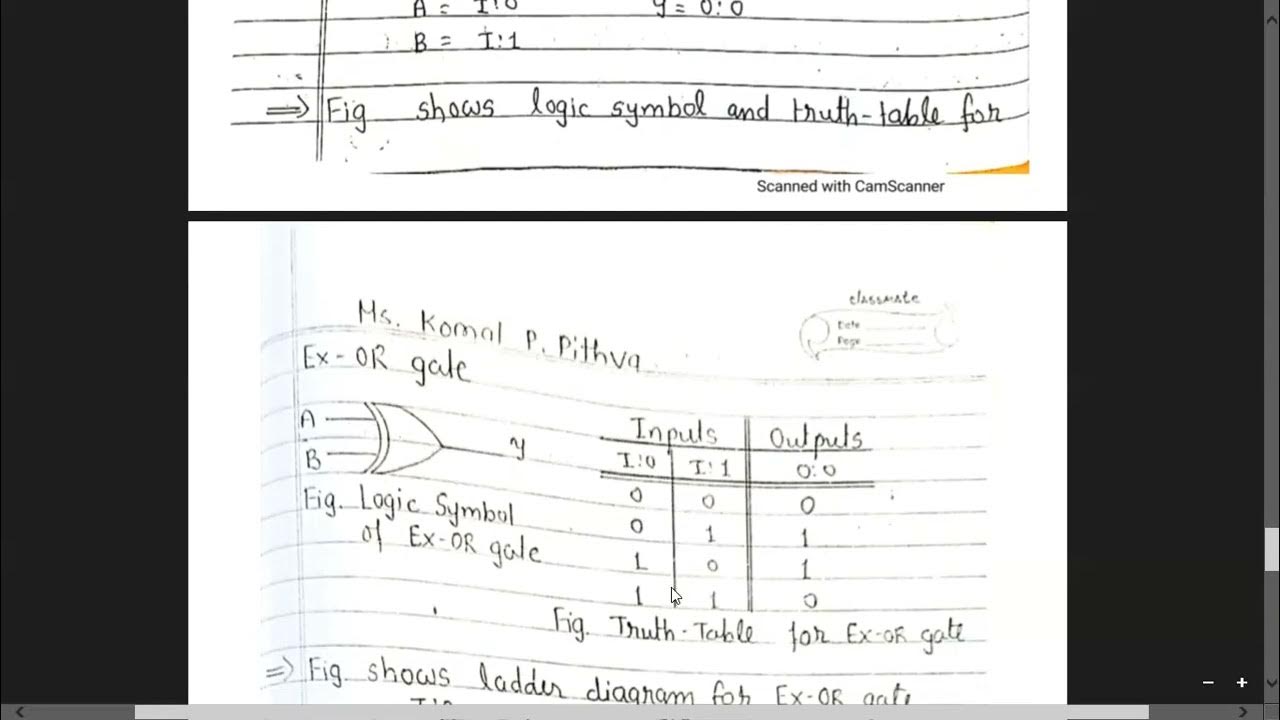 A = I:0 Y = O:0
B = I:1
⇒ Fig shows logic symbol and truth-table for
Scanned with CamScanner
classmate
Date
Page
Ms. Komal P. Pithva
Ex-OR gate
A
B
y
Fig. Logic Symbol
of Ex-OR gate
Inputs Outputs
I:0 I:1 O:0
0 0 0
0 1 1
1 0 1
1 1 0
Fig. Truth-Table for Ex-OR gate
⇒ Fig shows ladder diagram for Ex-OR gate